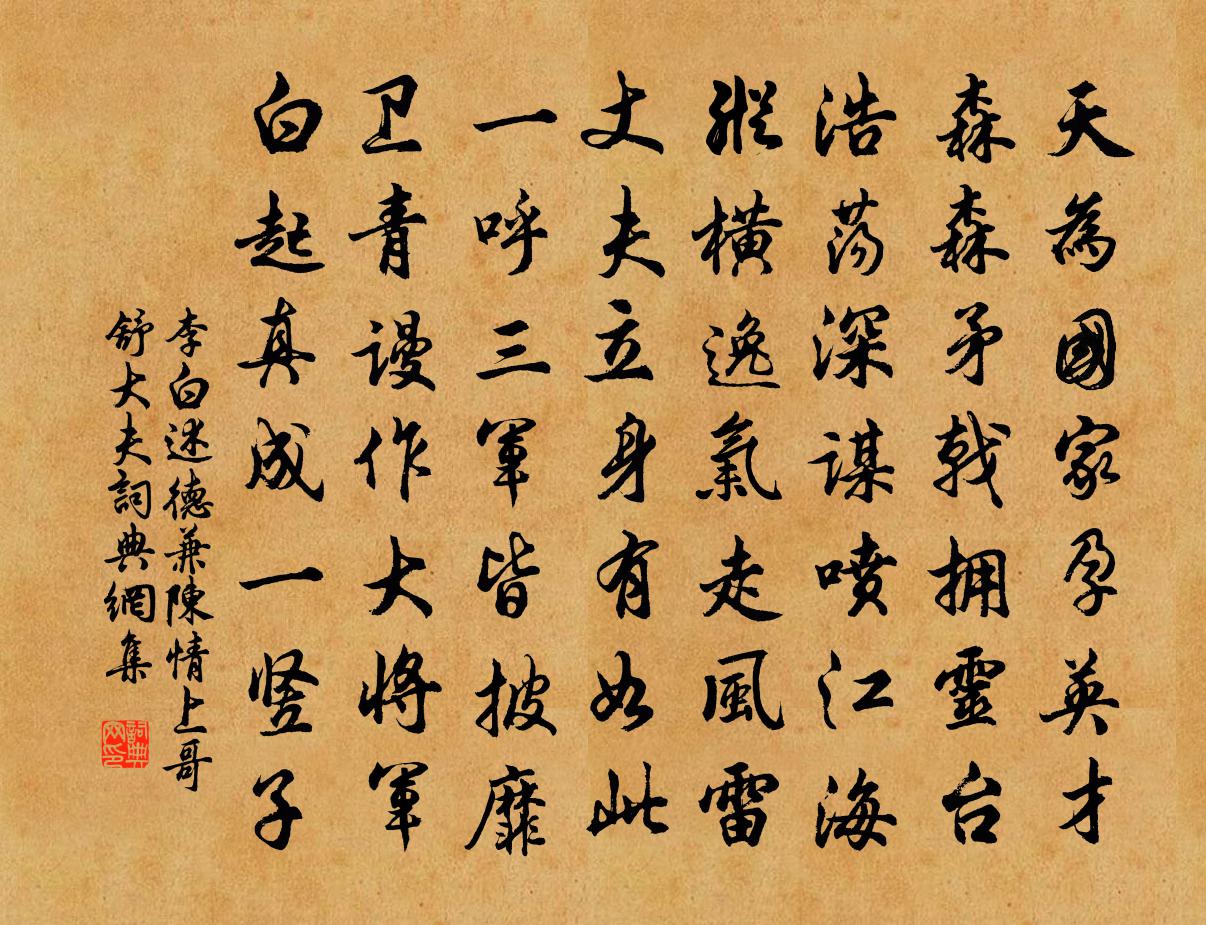 天為國家孕英才
森森矛戟拥靈台
浩荡深謀喷江海
縱橫逸氣走風雷
丈夫立身有如此
一呼三軍皆披靡
卫青謾作大将軍
白起真成一竖子
李白述德兼陳情上哥
舒大夫詞典網集
詞典网印